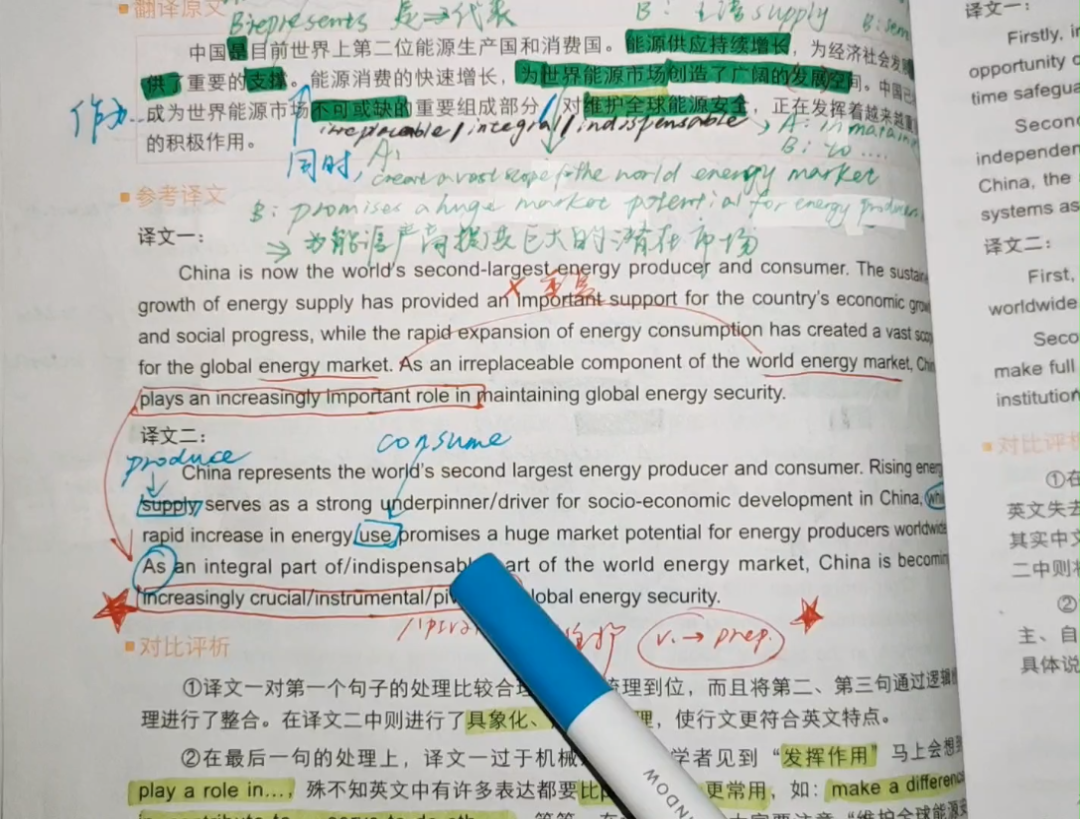 翻译原文
B:represents 是⇒代表
B: 主语supply
中国是目前世界上第二位能源生产国和消费国。能源供应持续增长，为经济社会发
供了重要的支撑。能源消费的快速增长，为世界能源市场创造了广阔的发展空间。中国已
作为...成为世界能源市场不可或缺的重要组成部分，对维护全球能源安全，正在发挥着越来越重
irreplaceable/integral/indispensable
的积极作用。
同时,
A: create a vast scope for the world energy market
B: to ....
参考译文
B: promises a huge market potential for energy producers
⇒ 为能源产商提供巨大的潜在市场
译文一：
China is now the world's second-largest energy producer and consumer. The
growth of energy supply has provided an important support for the country's economic
and social progress, while the rapid expansion of energy consumption has created a vast
for the global energy market. As an irreplaceable component of the world energy market,
plays an increasingly important role in maintaining global energy security.
译文二：
produce
consume
China represents the world's second largest energy producer and consumer. Rising
supply serves as a strong underpinner/driver for socio-economic development in China,
rapid increase in energy use promises a huge market potential for energy producers
As an integral part of/indispensab art of the world energy market, China is
increasingly crucial/instrumental/pi lobal energy security.
v. → prep.
对比评析
①译文一对第一个句子的处理比较合 理到位，而且将第二、第三句通过逻辑
理进行了整合。在译文二中则进行了具象化、 理，使行文更符合英文特点。
②在最后一句的处理上，译文一过于机械 学者见到“发挥作用”马上会想到
play a role in...，殊不知英文中有许多表达都要比 更常用，如：make a difference
译文一：
Firstly,
opportunity
time
Second
independen
China, the
systems as
译文二：
First,
worldwide
Seco
make full
institution
对比评析
①在
英文失去
其实中文
二中则将
②
主、自
具体说
WINDOW